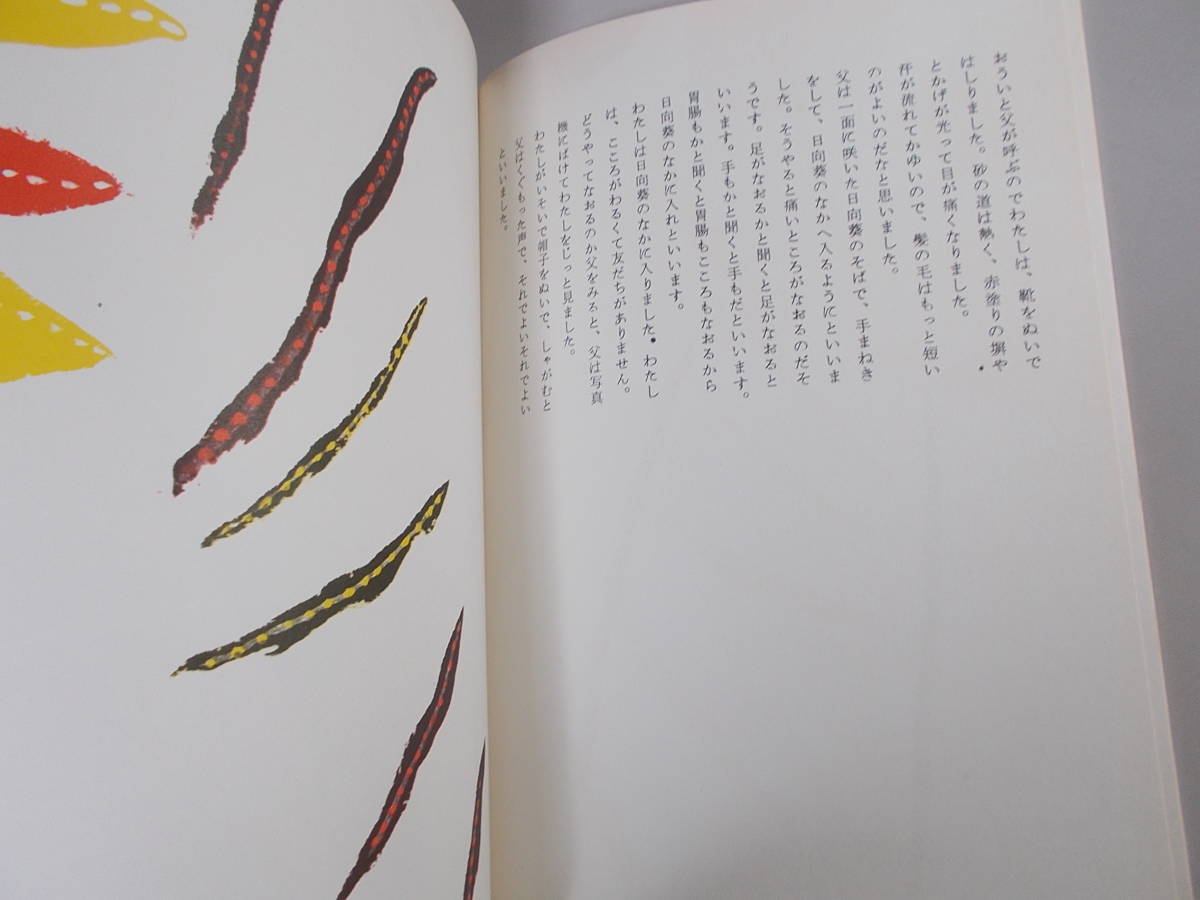 おういと父が呼ぶのでわたしは、靴をぬいで
はしりました。砂の道は熱く、赤塗りの塀や
とかげが光って目が痛くなりました。
汗が流れてかゆいので、髪の毛はもっと短い
のがよいのだなと思いました。
父は一面に咲いた日向葵のそばで、手まねき
をして、日向葵のなかへ入るようにといいま
した。そうやると痛いところがなおるのだそ
うです。足がなおるかと聞くと足がなおると
いいます。手もかと聞くと手もだといいます。
胃腸もかと聞くと胃腸もこころもなおるから
日向葵のなかに入れといいます。
わたしは日向葵のなかに入りました。わたし
は、こころがわるくて友だちがありません。
どうやってなおるのか父をみると、父は写真
機にばけてわたしをじっと見ました。
わたしがいそいで帽子をぬいで、しゃがむと
父はくぐもった声で、それでよいそれでよい
といいました。